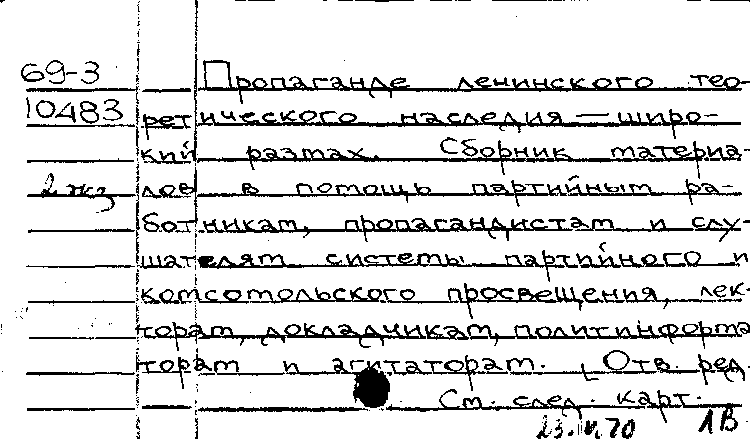 69-3 Пропаганде ленинского тео-
10483 ретического наследия — широ-
кий размах. Сборник материа-
2 экз лов в помощь партийным ра-
ботникам, пропагандистам и слу-
шателям системы партийного и
комсомольского просвещения, лек-
торам, докладчикам, политинформа
торам и агитаторам. Отв. ред.
См. след. карт.
23.IV.70 1В